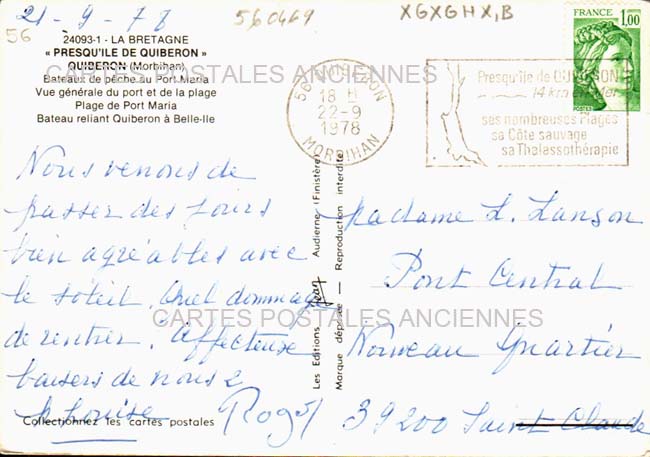 21-9-78
560469
XGXGHX,B
56
24093-1 - LA BRETAGNE
« PRESQU'ILE DE QUIBERON »
QUIBERON (Morbihan)
Bateaux de pêche au Port Maria
Vue générale du port et de la plage
Plage de Port Maria
Bateau reliant Quiberon à Belle-Ile
CARTES POSTALES ANCIENNES
56 QUIBERON
18 H
22-9
1978
MORBIHAN
Presqu'île de QUIBERON
14 km en mer
ses nombreuses Plages
sa Côte sauvage
sa Thalassothérapie
FRANCE
1,00
POSTES
Nous venons de
passer des jours
bien agréables avec
le soleil. Quel dommage
de rentrer. Affectueux
baisers de nous 2
Louise Roger
Collectionnez les cartes postales
Les Editions Jean Audierne (Finistère)
Marque déposée - Reproduction interdite
Madame L. Lanson
Pont Central
CARTES POSTALES ANCIENNES
Nouveau Quartier
39200 Saint Claude